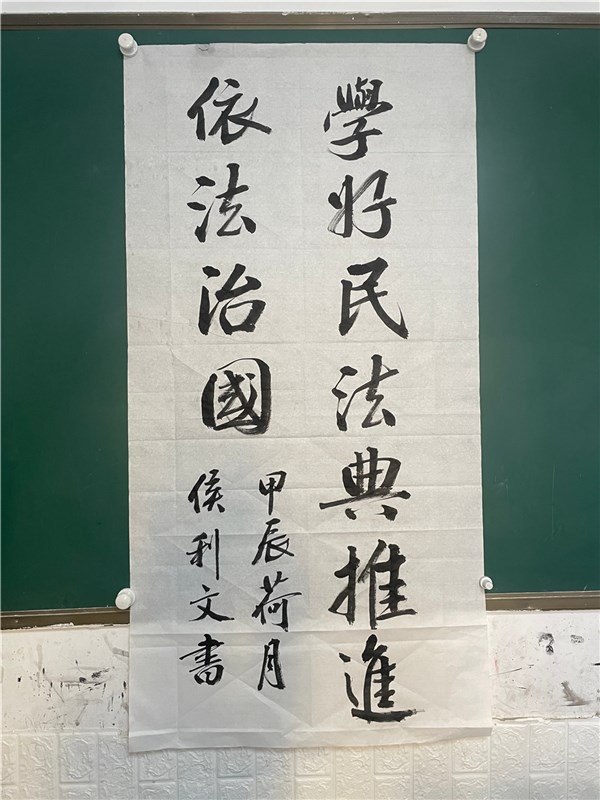 學好民法典推進
依法治國
甲辰荷月
侯利文書